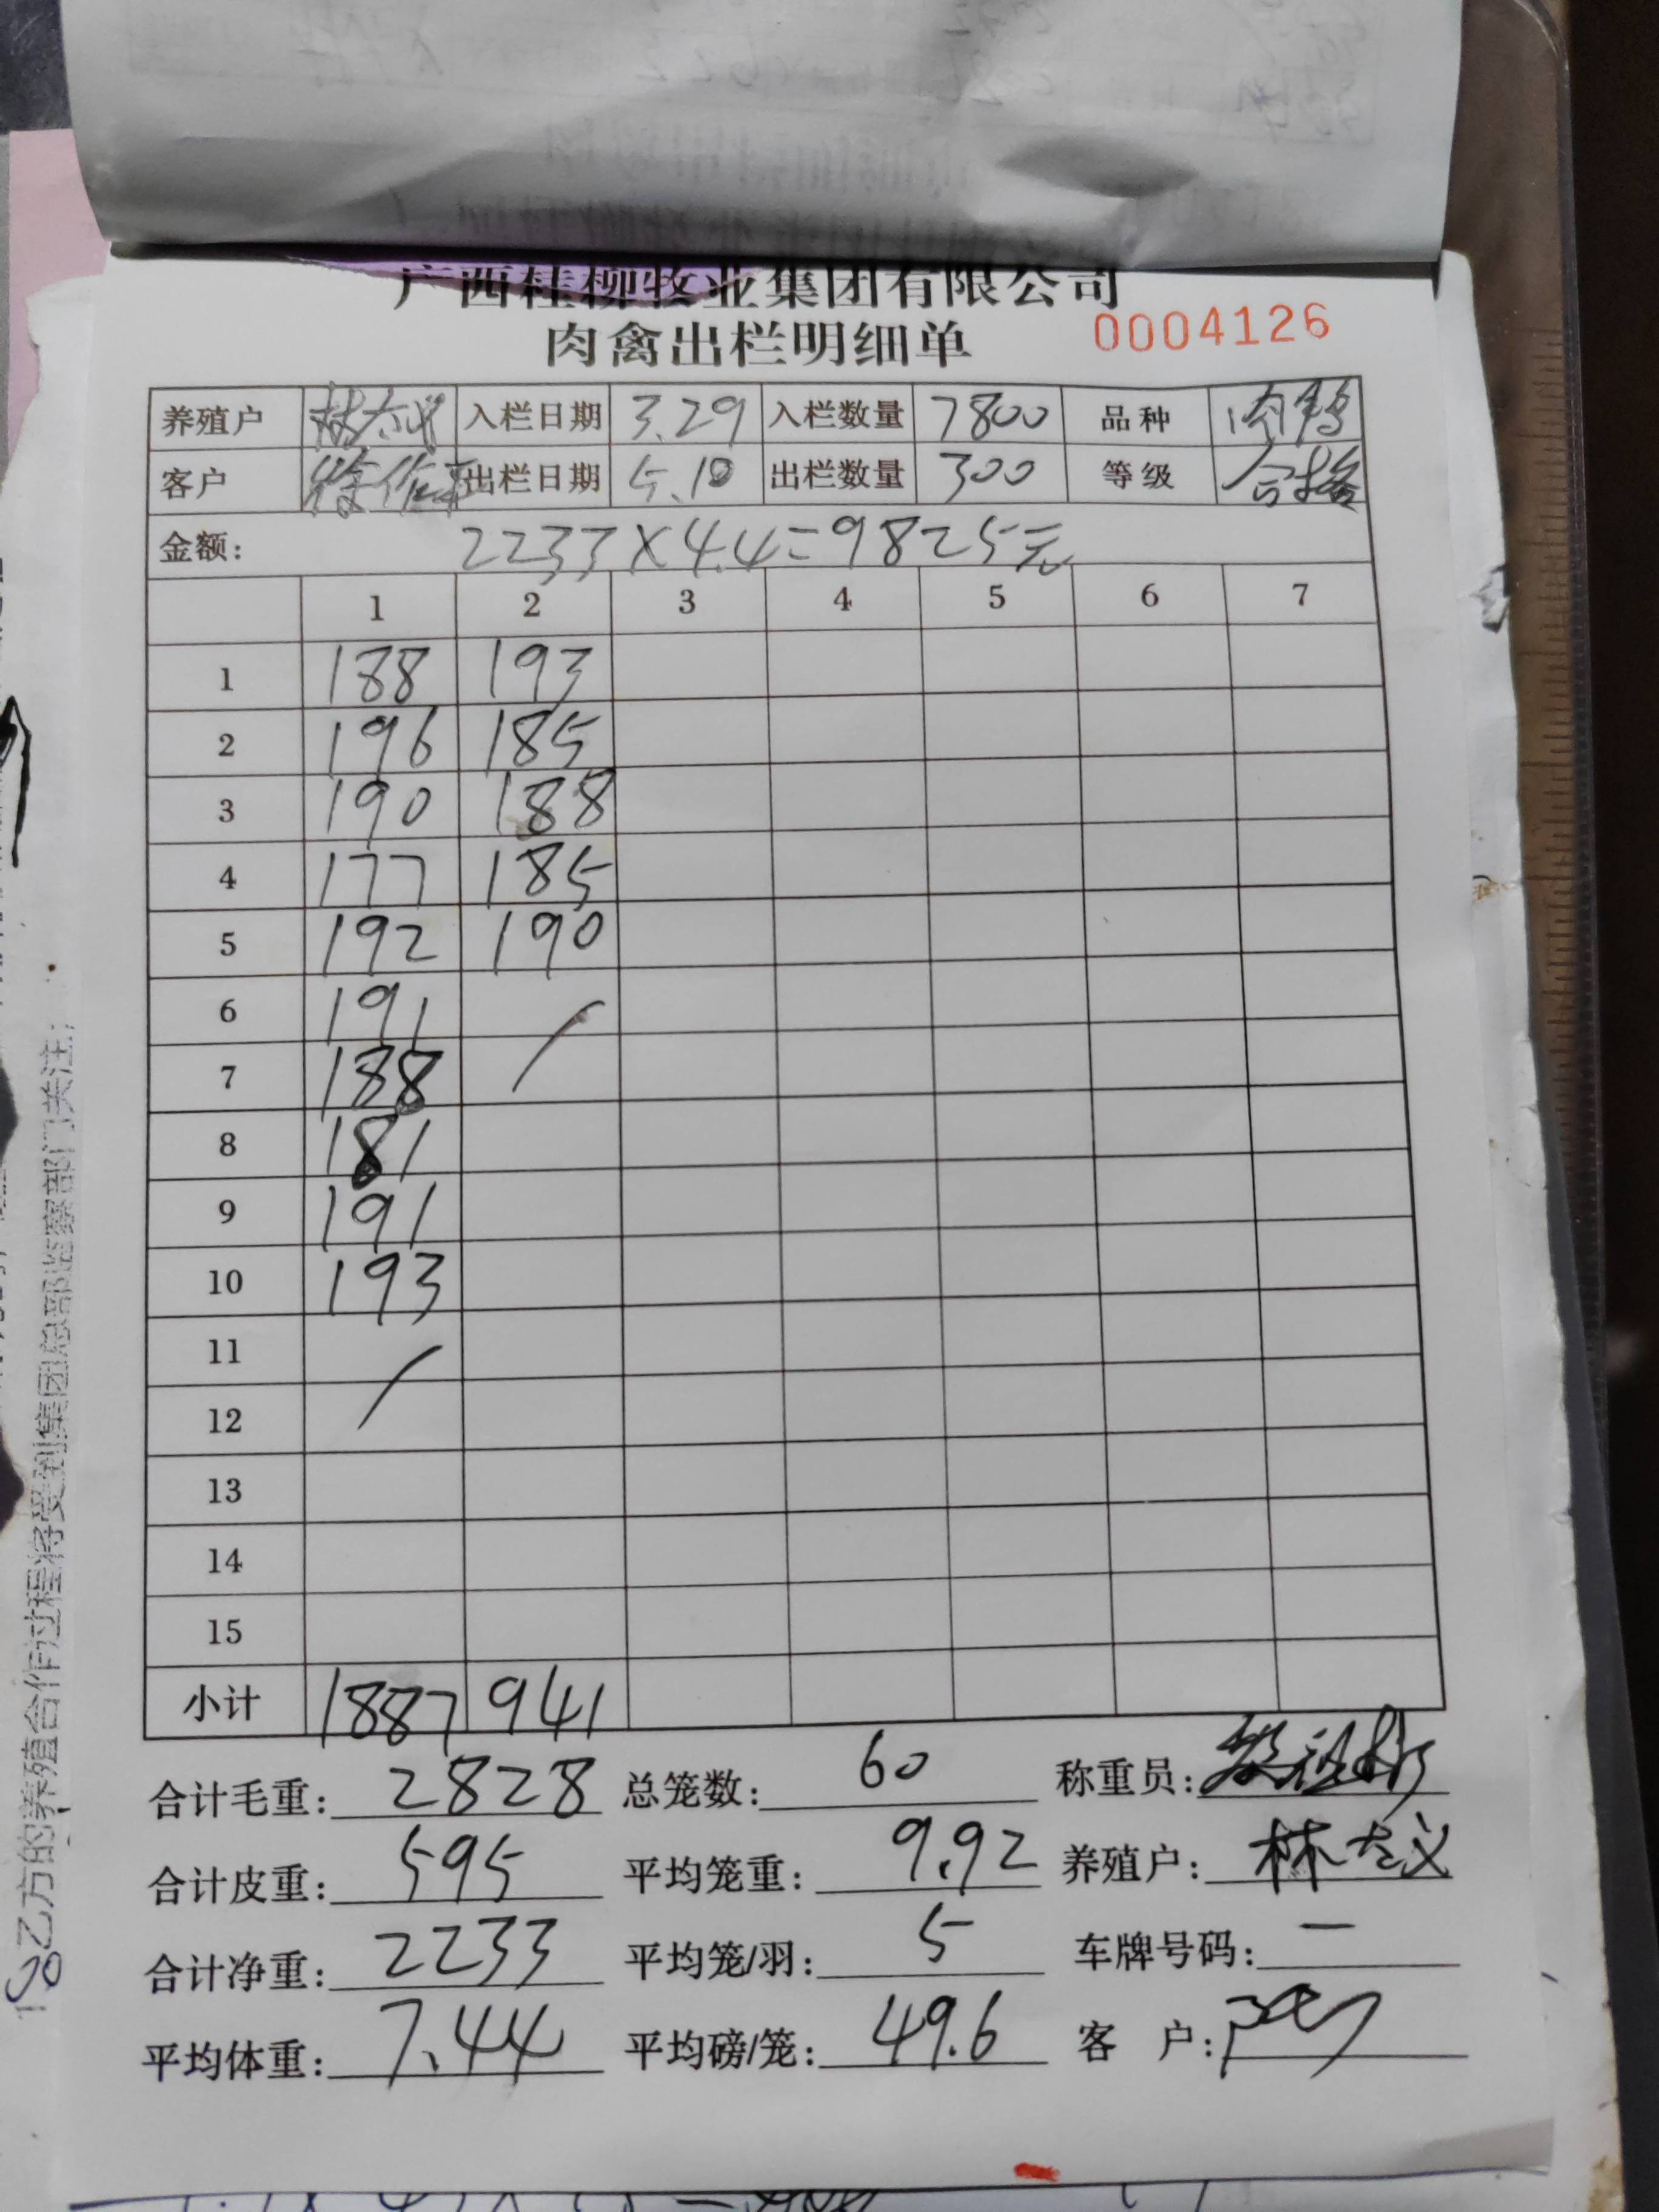 广西桂柳牧业集团有限公司
肉禽出栏明细单 0004126
养殖户 林大义 入栏日期 3.29 入栏数量 7800 品种 肉鸭
客户 出栏日期 5.10 出栏数量 300 等级 合格
金额: 2233×4.4=9825元
1 2 3 4 5 6 7
1 188 193
2 196 185
3 190 188
4 177 185
5 192 190
6 191
7 188
8 181
9 191
10 193
11
12
13
14
15
小计 1887 941
合计毛重: 2828 总笼数: 60 称重员:
合计皮重: 595 平均笼重: 9.92 养殖户: 林大义
合计净重: 2233 平均笼/羽: 5 车牌号码: 一
平均体重: 7.44 平均磅/笼: 49.6 客 户:
乙方的养殖合作过程将受到集团总部监察部门关注;